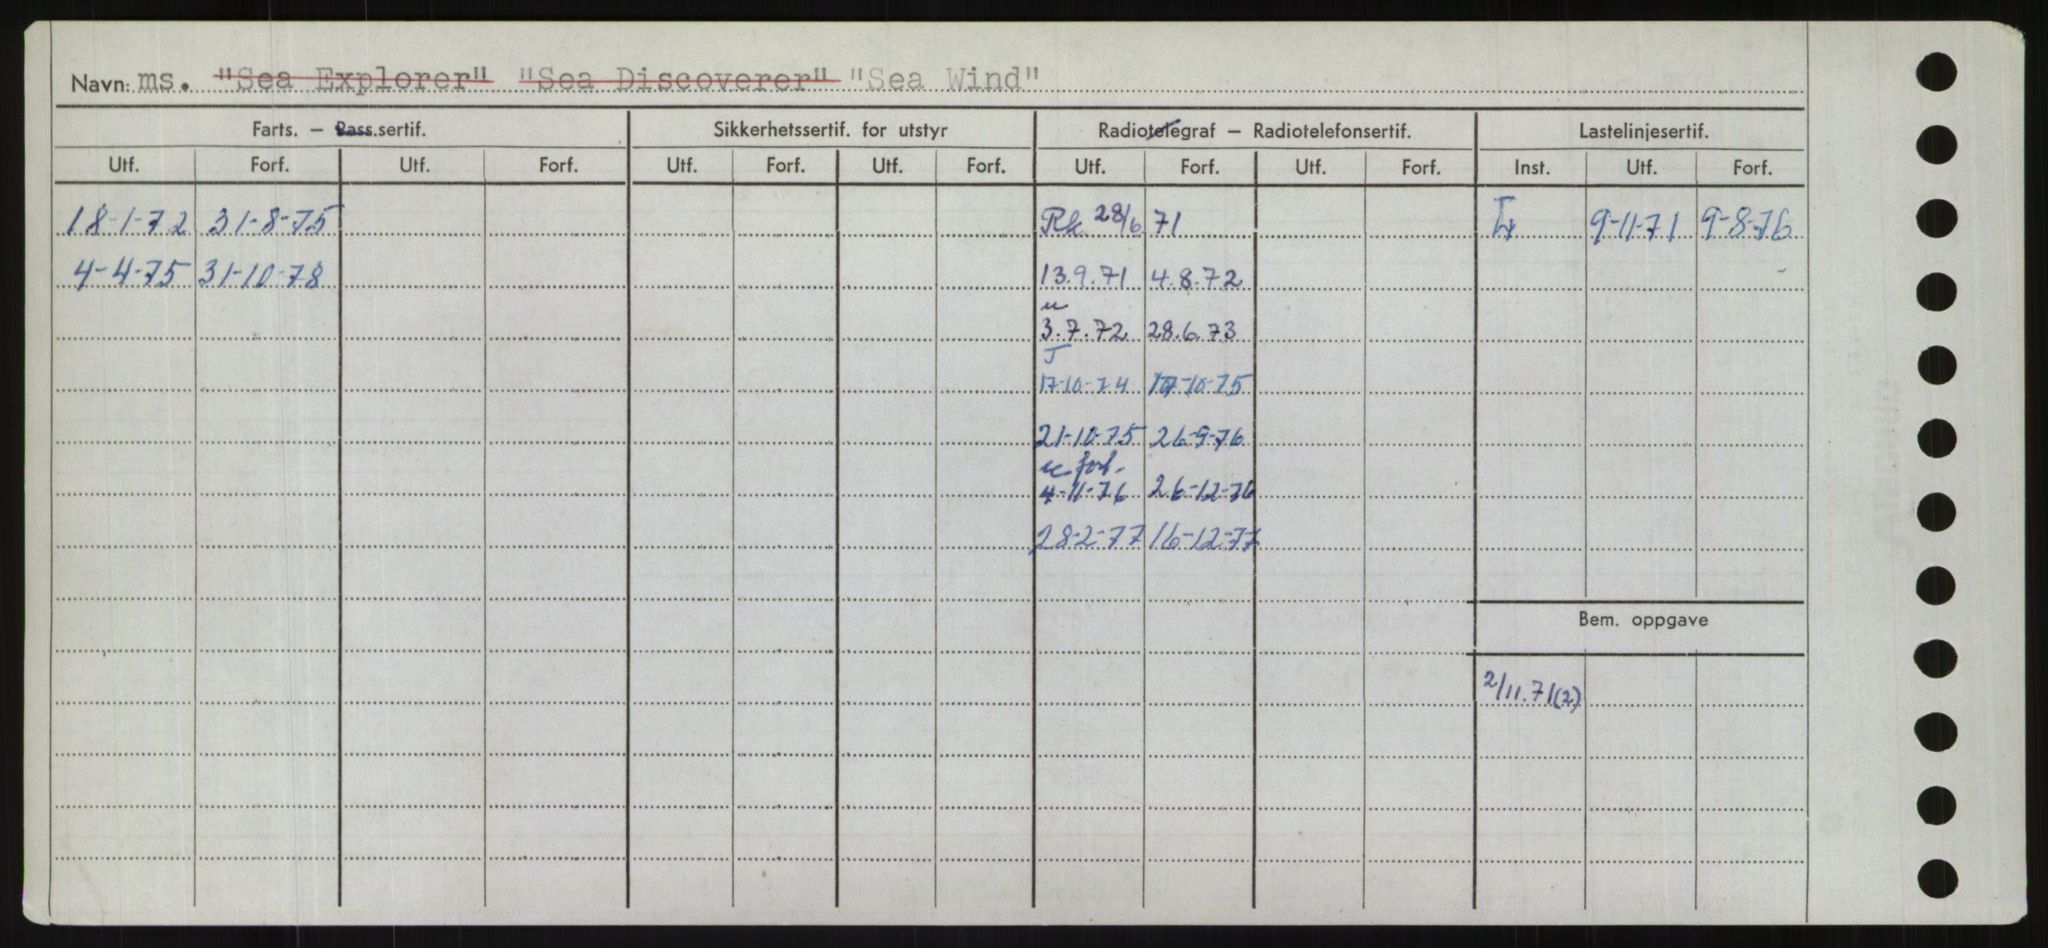 Navn: ms. "Sea Explorer" "Sea Discoverer" "Sea Wind"
Farts. — Pass.sertif. Sikkerhetssertif. for utstyr Radiotelegraf — Radiotelefonsertif. Lastelinjesertif.
Utf. Forf. Utf. Forf. Utf. Forf. Utf. Forf. Utf. Forf. Utf. Forf. Inst. Utf. Forf.
18-1-72 31-8-75 Rk 28/6 71 9-11-71 9-8-76
4-4-75 31-10-78 13.9.71 4.8.72
u
3.7.72 28.6.73
J
17-10-74 10-75
21-10-75 26-9-76
u forl.
4-11-76 26-12-76
28-2-77 16-12-77
Bem. oppgave
2/11.71(2)